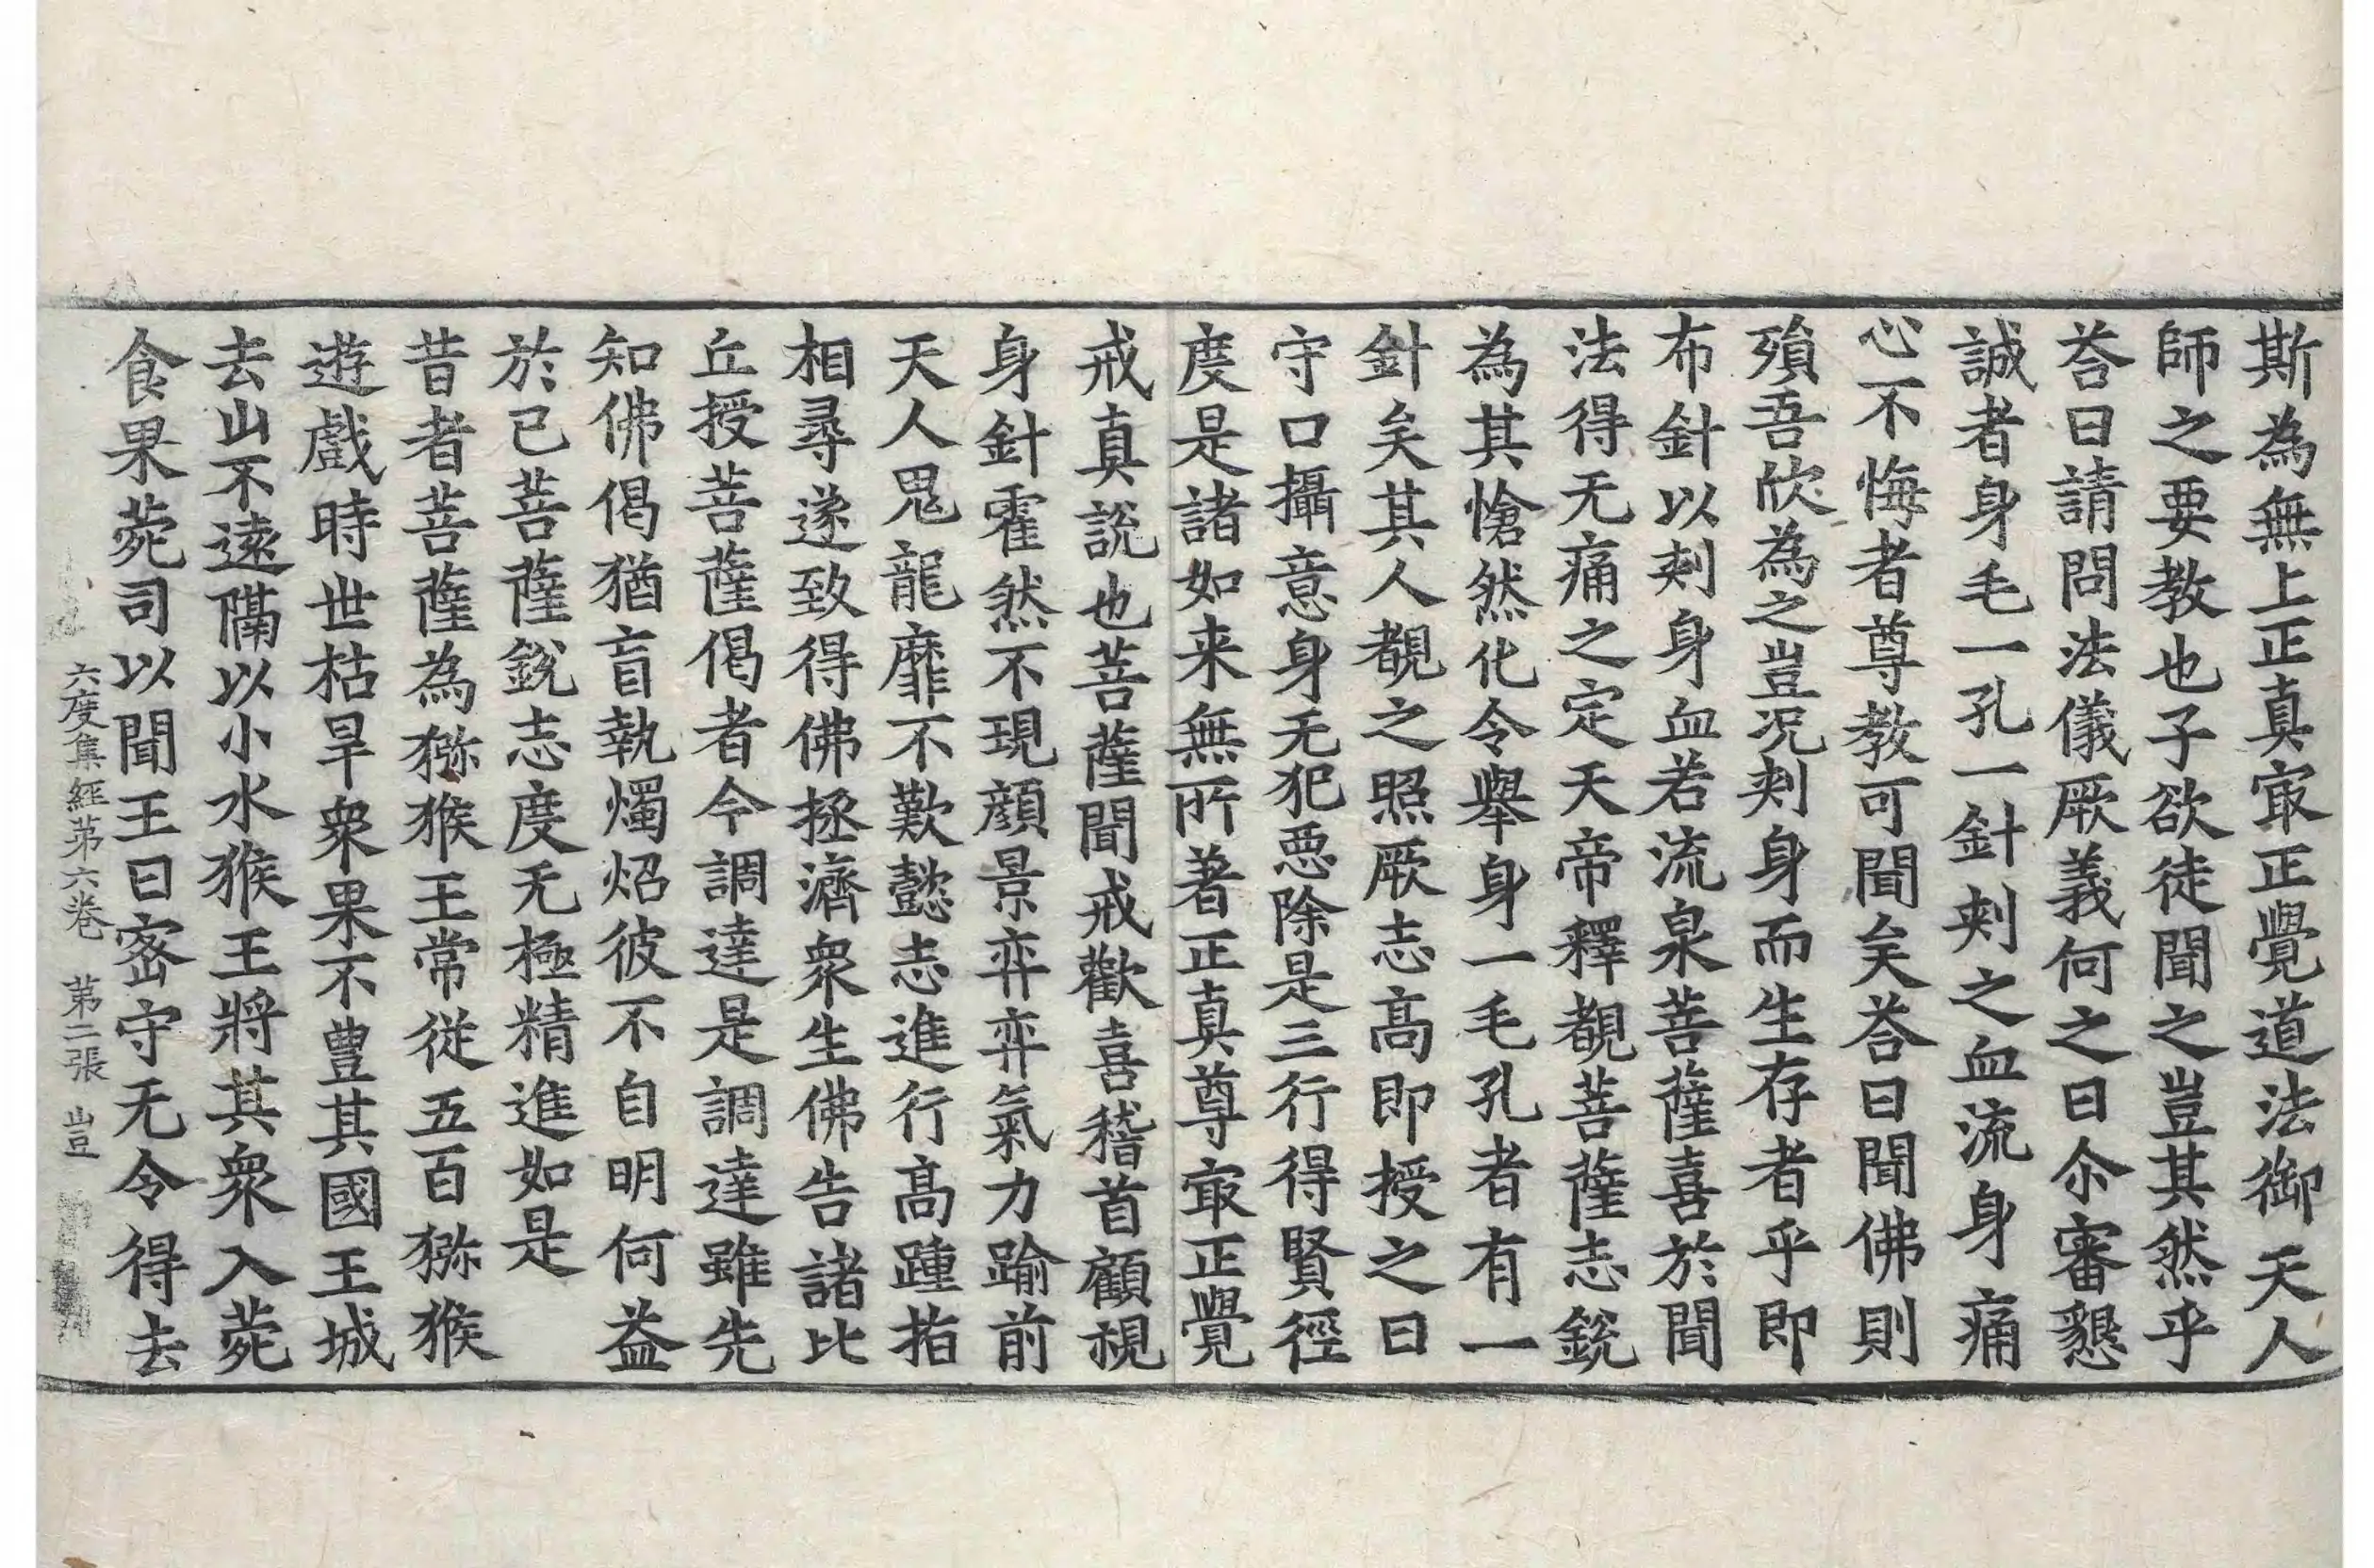 斯為無上正真㝡正覺道法御天人
師之要教也子欲徒聞之豈其然乎
荅曰請問法儀厥義何之曰尒審懇
誠者身毛一孔一針刾之血流身痛
心不悔者尊教可聞矣荅曰聞佛則
殞吾欣為之豈况刾身而生存者乎即
布針以刾身血若流泉菩薩喜於聞
法得无痛之定天帝釋覩菩薩志銳
為其愴然化令舉身一毛孔者有一
針矣其人覩之照厥志高即授之曰
守口攝意身无犯惡除是三行得賢徑
度是諸如来無所著正真尊㝡正覺
戒真說也菩薩聞戒歡喜稽首顧視
身針霍然不現顔景弈弈氣力踰前
天人鬼龍靡不歎懿志進行高踵指
相尋遂致得佛拯濟衆生佛告諸比
丘授菩薩偈者今調達是調達雖先
知佛偈猶盲執燭炤彼不自明何益
於己菩薩銳志度无極精進如是
昔者菩薩為猕猴王常從五百猕猴
遊戲時世枯旱衆果不豊其國王城
去山不遠隔以小水猴王將其衆入菀
食果菀司以聞王曰密守无令得去
六度集經第六卷 第二張 豈